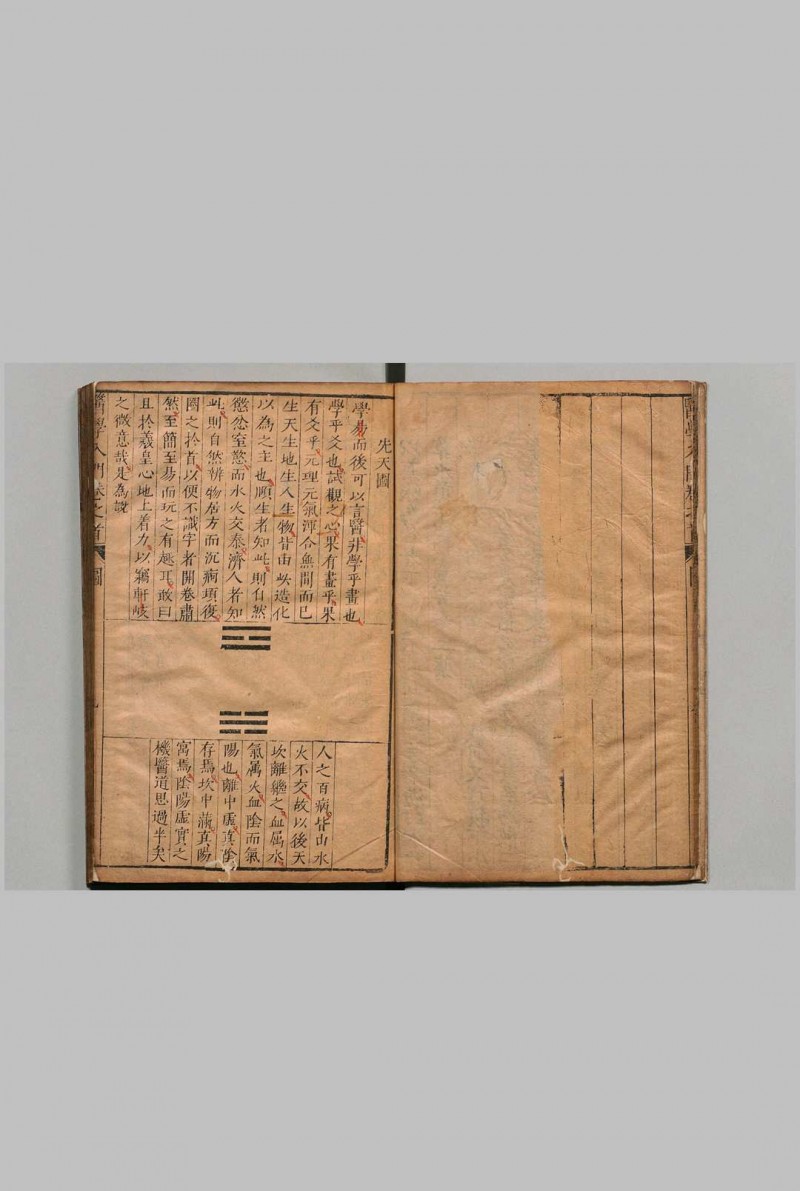 醫學入門卷之首 圖
先天圖
學易而後可以言醫非學乎畫也
學乎爻也試觀之心果有畫乎果
有爻乎元理元氣渾合無間而已
生天生地生人生物皆由此造化
以為之主也順生者知此則自然
懲忿窒慾而水火交泰濟人者知
此則自然辨物居方而沉痾頃復
圖之於首以便不識字者開卷肅
然至簡至易而玩之有趣耳敢曰
且於羲皇心地上着力以竊軒岐
之微意哉是為說
人之百病皆由水
火不交故以後天
坎離繼之血屬水
氣属火血陰而氣
陽也離中虛真陰
存焉坎中滿真陽
寓焉陰陽虛實之
機醫道思過半矣
醫學入門卷之首 圖